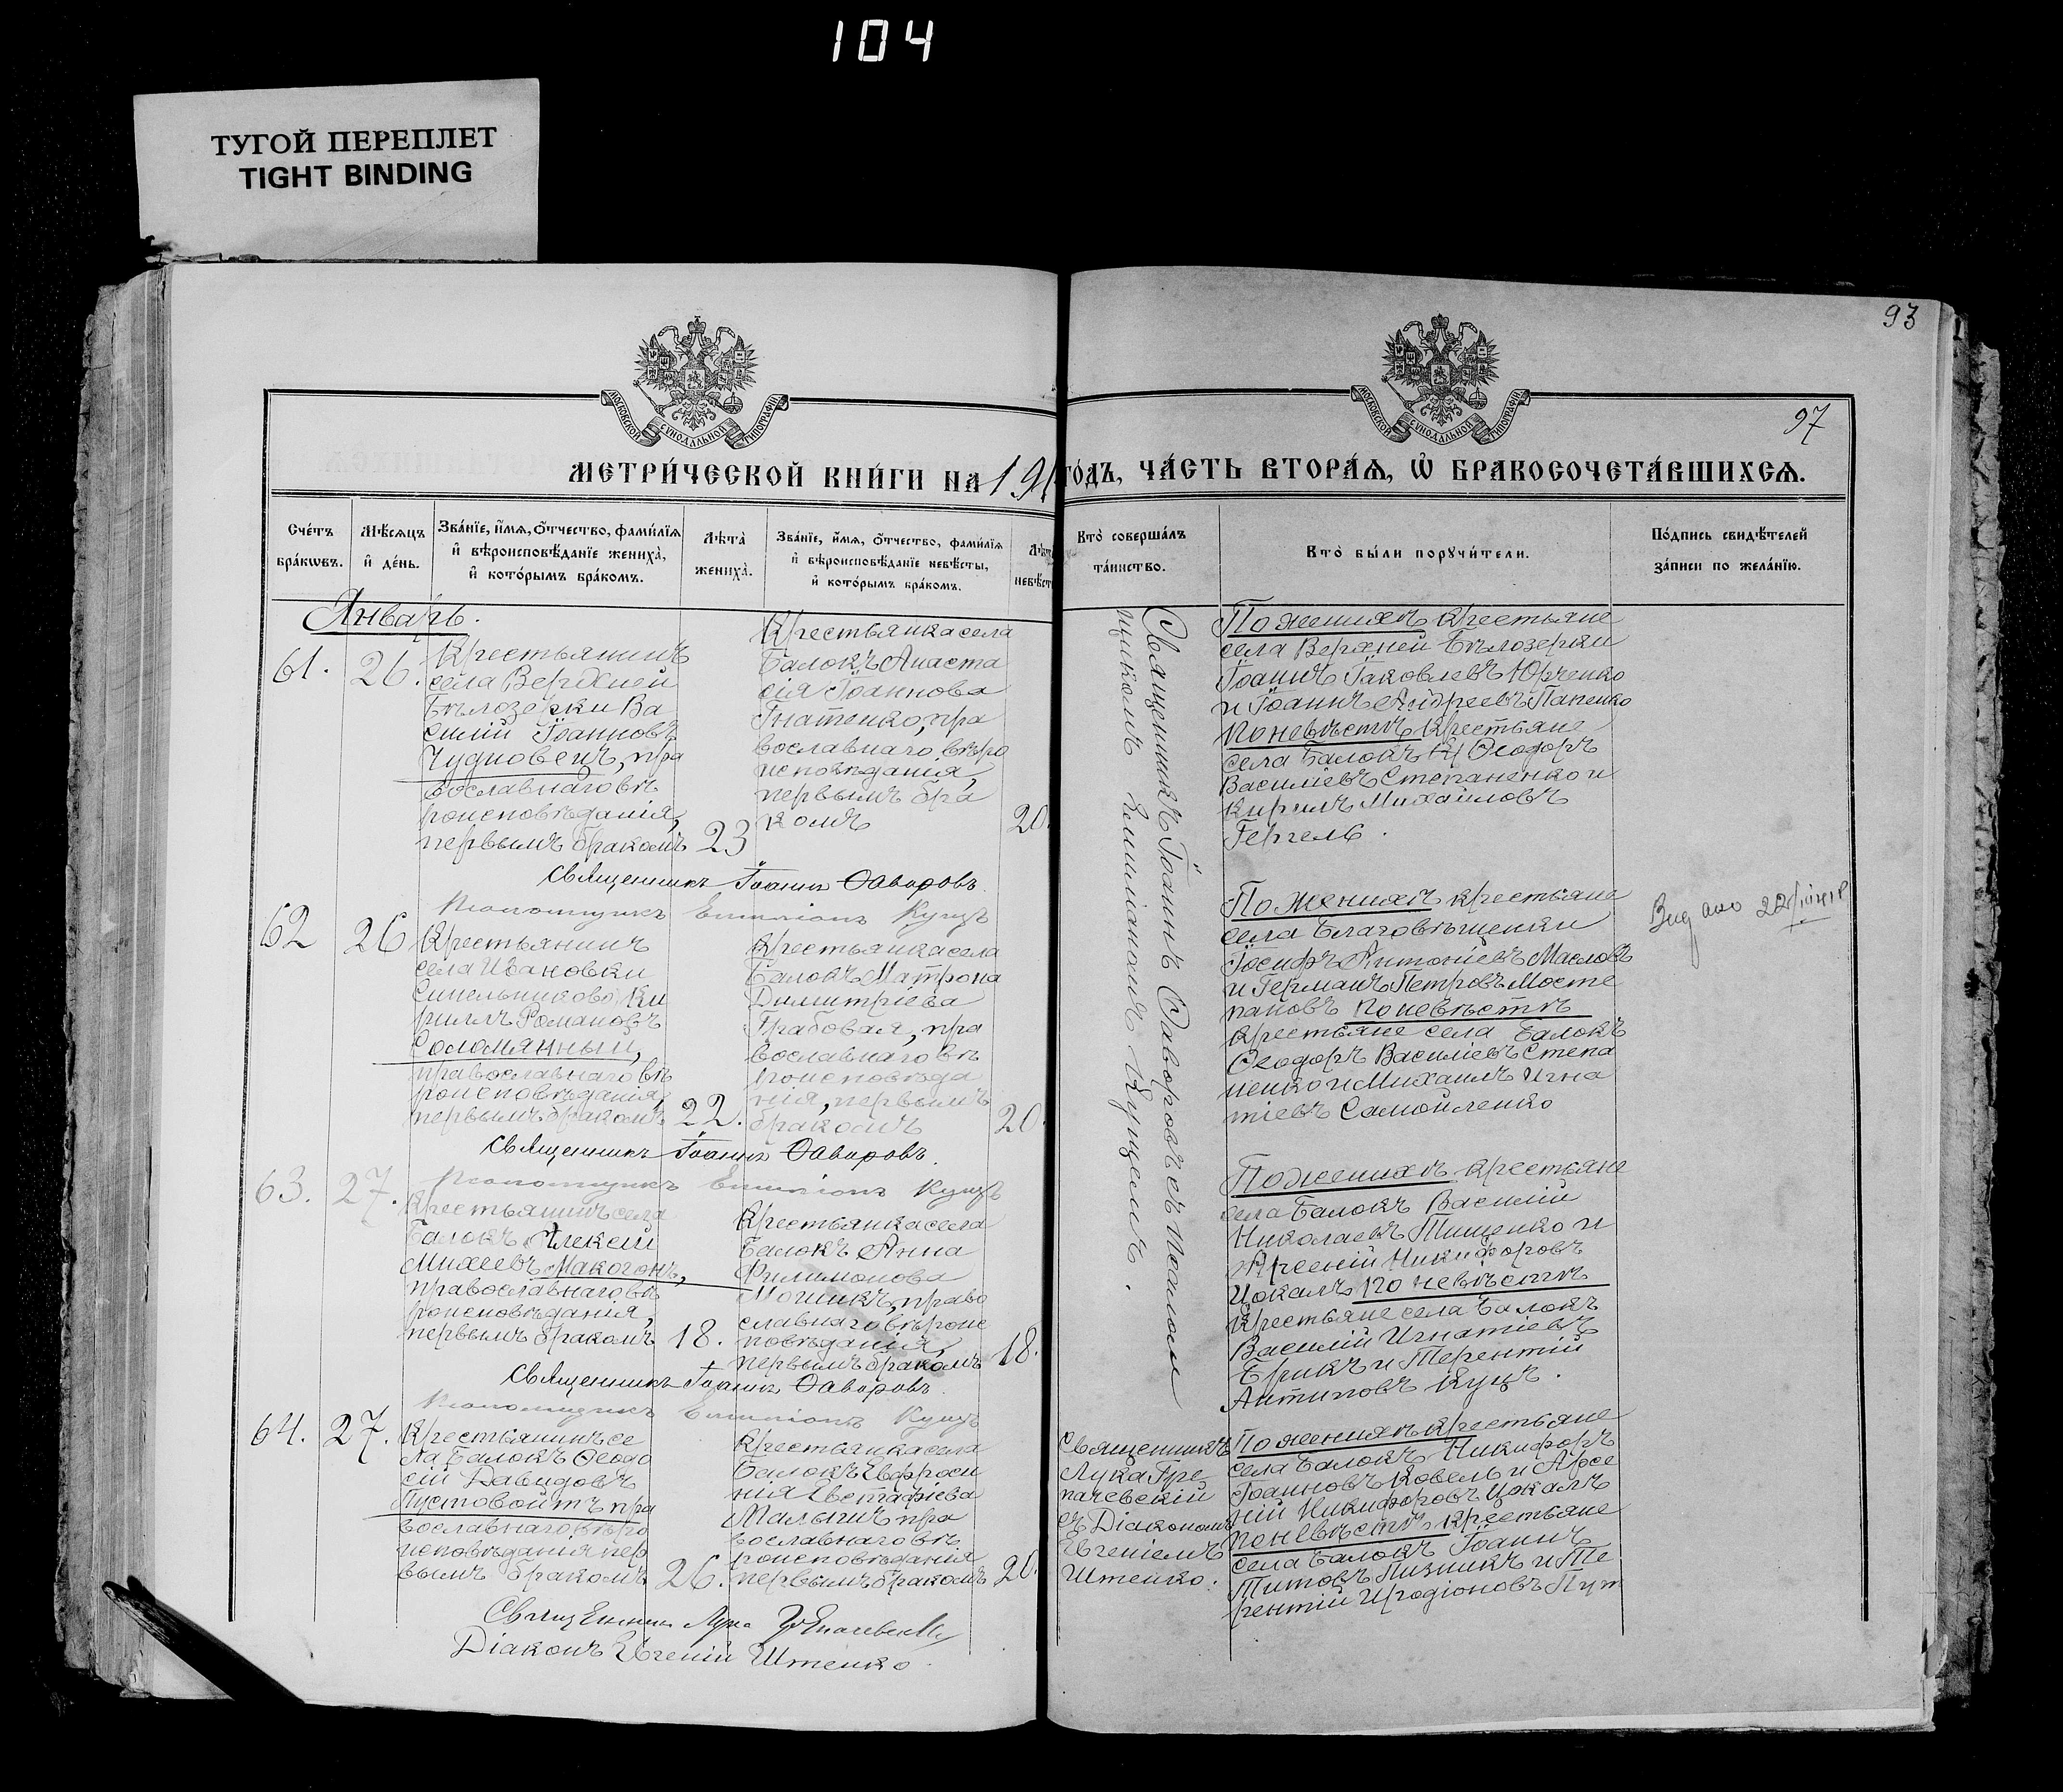 104
ТУГОЙ ПЕРЕПЛЕТ
TIGHT BINDING
93
97
МОСКОВСКОЙ СѴНОДАЛЬНОЙ ТИПОГРАФІИ
МОСКОВСКОЙ СѴНОДАЛЬНОЙ ТИПОГРАФІИ
МЕТРИ́ЧЕСКОЙ КНИ́ГИ НА 191
ГО́ДЪ, ЧА́СТЬ ВТОРА́Ѧ, Ѡ҆ БРАКОСОЧЕТА́ВШИХСѦ.
Сче́тъ
бра́кѡвъ.
Мѣ́сѧцъ
и҆ де́нь.
Зва́нїе, и҆́мѧ, ѻ҆́тчество, фами́лїѧ
и҆ вѣроисповѣ́данїе жениха̀,
и҆ кото́рымъ бра́комъ.
Лѣта̀
жениха̀.
Зва́нїе, и҆́мѧ, ѻ҆́тчество, фами́лїѧ
и҆ вѣроисповѣ́данїе невѣ́сты,
и҆ кото́рымъ бра́комъ.
Лѣта
невѣст
Кто̀ соверша́лъ
та́инство.
Кто̀ бы́ли порꙋчи́тели.
По́дпись свидѣ́телей
за́писи по жела́нїю.
Январь.
61.
26.
Крестьянинъ
села Верхней
Бѣлозерки Ва
силій Іоанновъ
Чудновецъ, пра
вославнаго вѣ
роисповѣданія,
первымъ бракомъ
23
Крестьянка села
Балокъ Анаста
сія Іоаннова
Гнатенко, пра
вославнаго вѣро
исповѣданія,
первымъ бра
комъ
20.
Священникъ Іоаннъ Фаворовъ съ псалом
щикомъ Емиліаномъ Куцемъ.
По женихѣ крестьяне
села Верхней Бѣлозерки
Іоаннъ Іаковлевъ Юрченко
и Іоаннъ Андреевъ Папенко
по невѣстѣ крестьяне
села Балокъ Ѳеодоръ
Василіевъ Степаненко и
Кирилъ Михайловъ
Гергель.
Священникъ Іоаннъ Фаворовъ.
Псаломщикъ Емиліанъ Куцъ
62
26
Крестьянинъ
села Ивановки
Синельниково Ки
риллъ Романовъ
Соломянный,
православнаго вѣ
роисповѣданія,
первымъ бракомъ
22.
Крестьянка села
Балокъ Матрона
Димитріева
Грабовая, пра
вославнаго вѣ
роисповѣда
нія, первымъ
бракомъ
20.
По женихѣ крестьяне
села Благовѣщенки
Іосифъ Антоніевъ Масловъ
и Германъ Петровъ Мосте
пановъ по невѣстѣ
крестьяне села Балокъ
Ѳеодоръ Василіевъ Степа
ненко и Михаилъ Игна
тіевъ Самойленко
Выдано 22/
Священникъ Іоаннъ Фаворовъ.
Псаломщикъ Емиліанъ Куцъ
63.
27.
Крестьянинъ села
Балокъ Алексій
Михеевъ Макогонъ,
православнаго вѣ
роисповѣданія,
первымъ бракомъ
18.
Крестьянка села
Балокъ Анна
Филимонова
право
славнаго вѣроис
повѣданія,
первымъ бракомъ
18.
По женихѣ крестьяне
села Балокъ Василій
Николаевъ Тищенко и
Арсеній Никифоровъ
Цокалъ по невѣстѣ
крестьяне села Балокъ
Василій Игнатіевъ
и Терентій
Антиповъ Куцъ.
Священникъ Іоаннъ Фаворовъ.
Псаломщикъ Емиліанъ Куцъ
64.
27.
Крестьянинъ се
ла Балокъ Ѳеодо
сій Давидовъ
Пустовойтъ пра
вославнаго вѣро
исповѣданія пер
вымъ бракомъ
26.
Крестьянка села
Балокъ Евфроси
нія Евстафіева
Малышъ пра
вославнаго вѣ
роисповѣданія
первымъ бракомъ
20.
Священникъ
Лука Гре
пачевскій
съ Діакономъ
Евгеніемъ
Штенко.
По женихѣ крестьяне
села Балокъ Никифоръ
Іоанновъ Ковель и Арсе
ній Никифоровъ Цокалъ
по невѣстѣ крестьяне
села Балокъ Іоаннъ
Титовъ и Те
рентій Иродіоновъ
Священникъ Лука Грепачевскій
Діаконъ Евгеній Штенко.